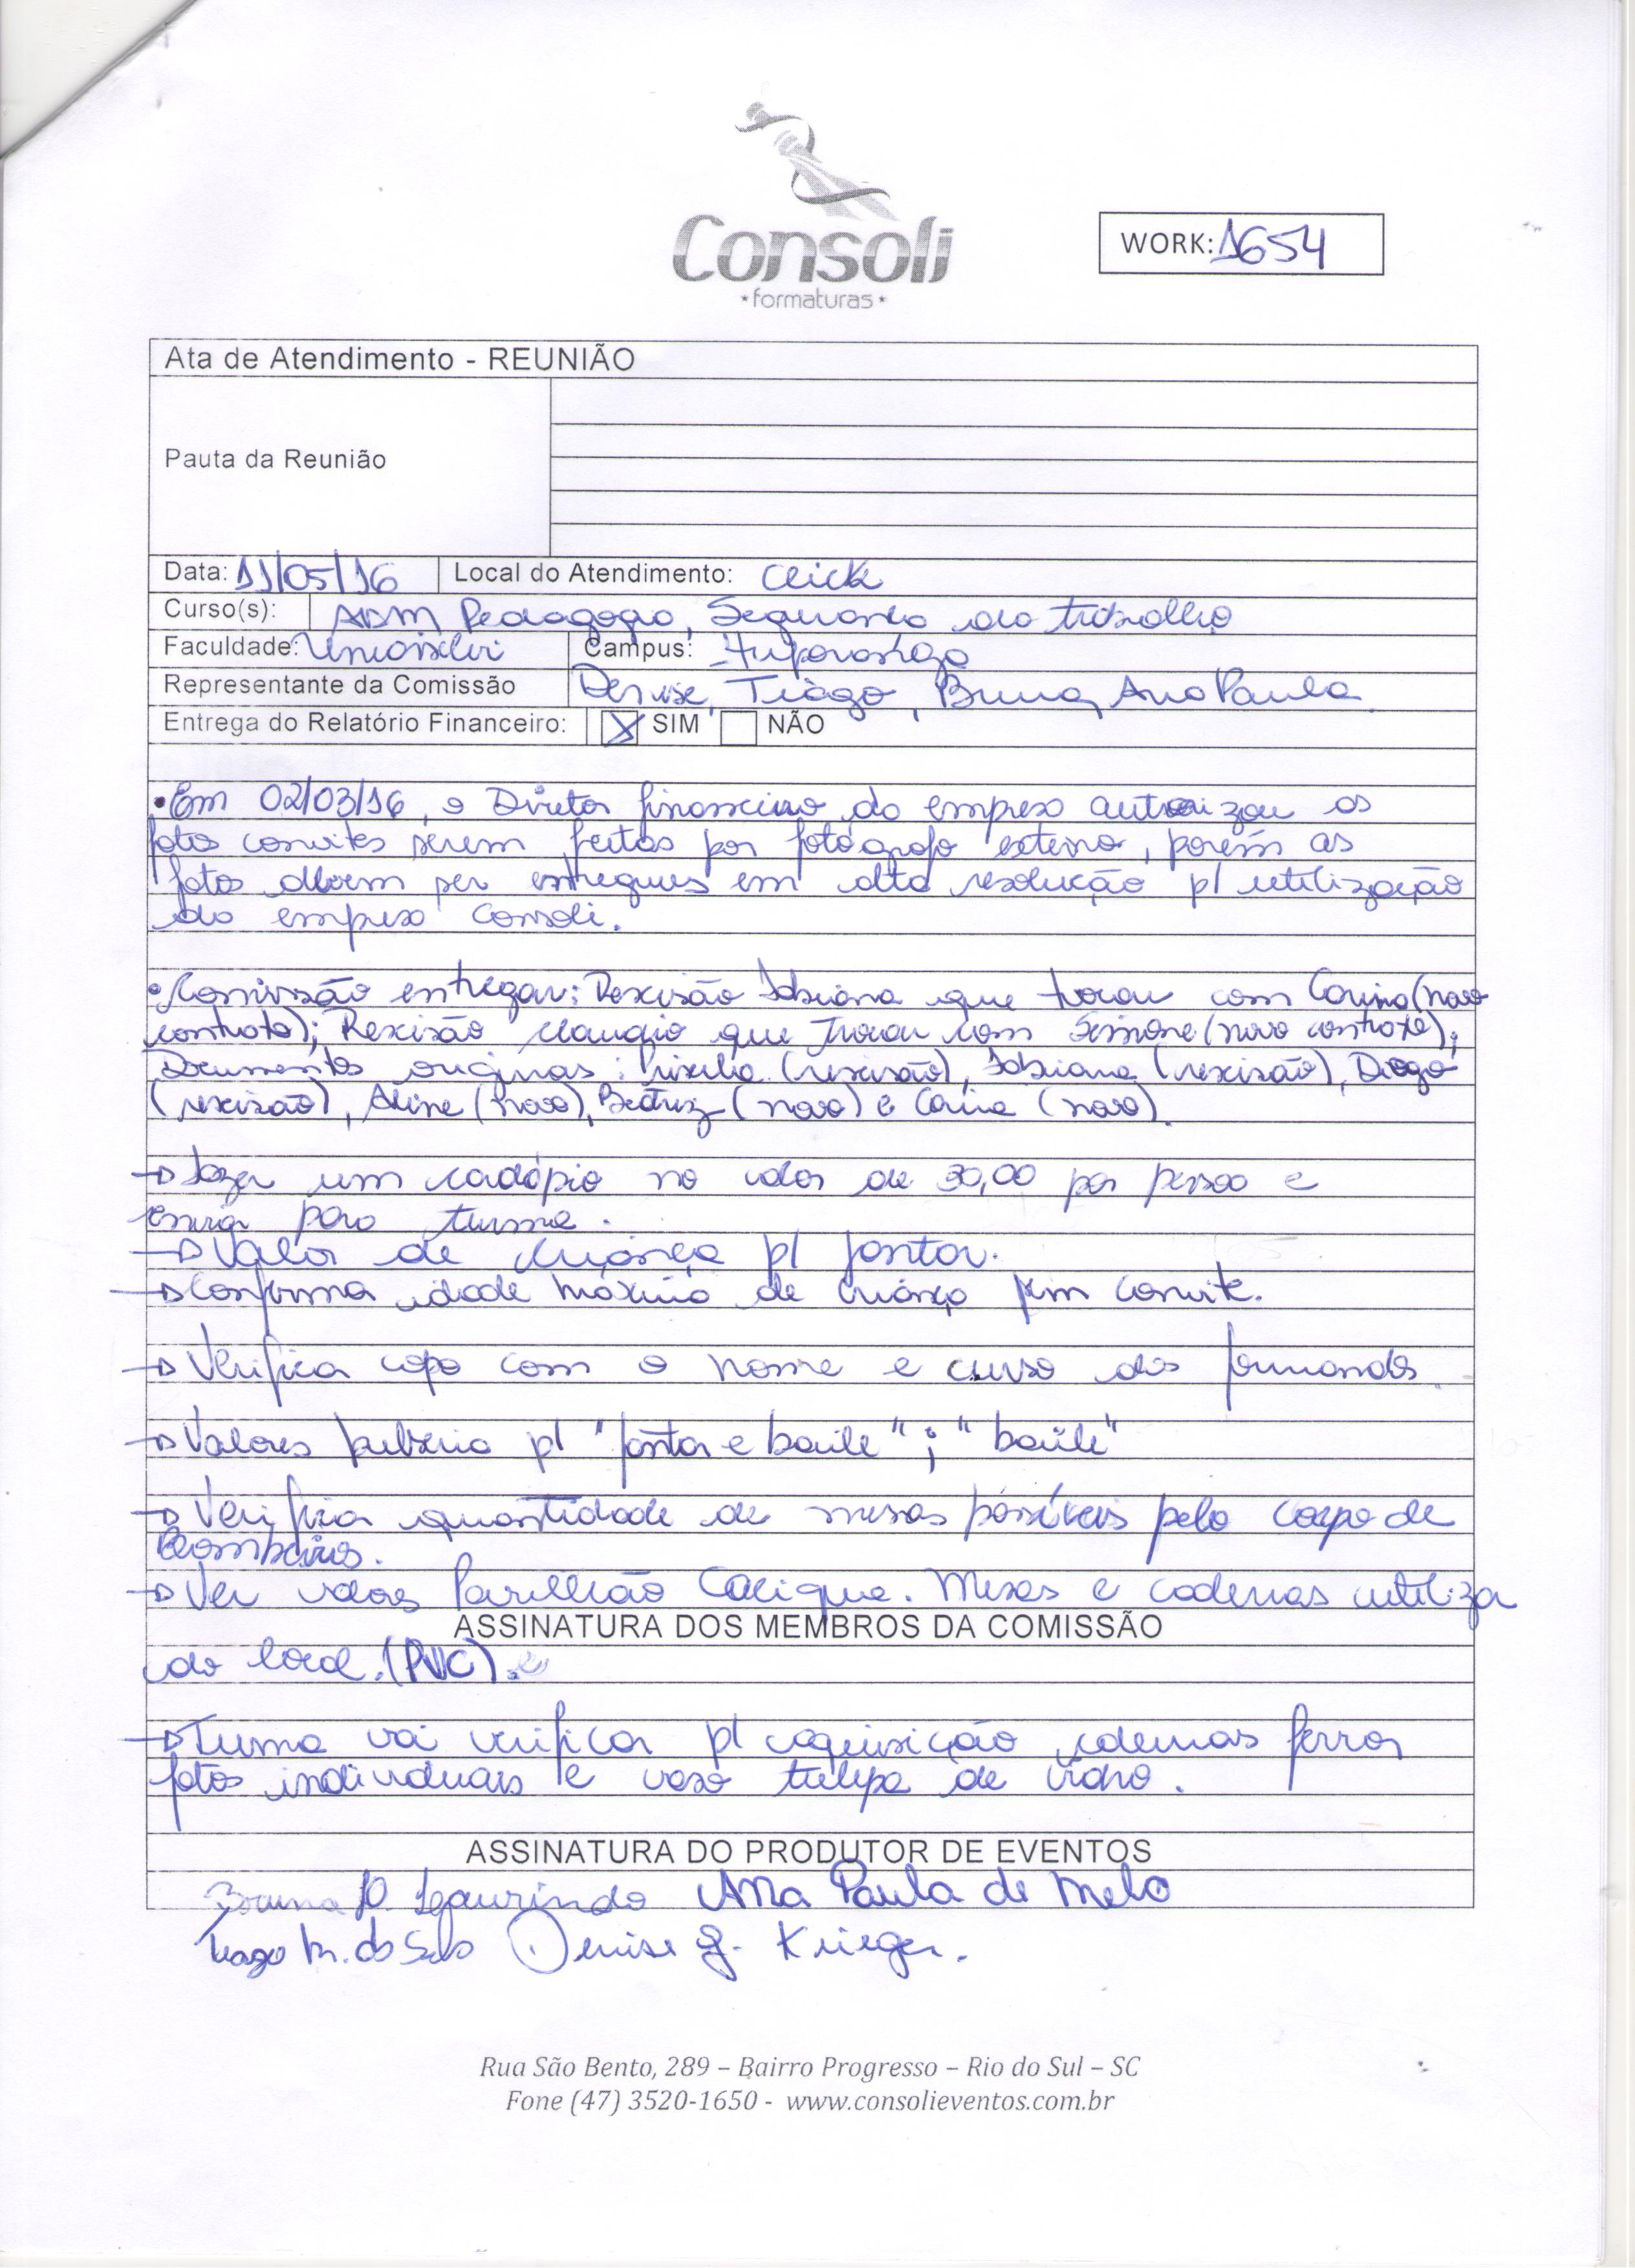 Consoli
*formaturas*
WORK: 1654
Ata de Atendimento - REUNIÃO
Pauta da Reunião
Data: 11/05/16 Local do Atendimento: Click
Curso(s): ADM Pedagogia, Segurança do trabalho
Faculdade: Uniasselvi Campus: Ituporanga
Representante da Comissão Denise, Tiago, Bruna, Ana Paula
Entrega do Relatório Financeiro: X SIM NÃO
•Em 02/03/16, o Diretor financeiro da empresa autorizou as
fotos convites serem feitas por fotógrafo externo, porém as
fotos devem ser entregues em alta resolução p/ utilização
da empresa Consoli.
•Comissão entregar: Rescisão que trocou com Carina (novo
contrato); Rescisão que trocou com Simone (novo contrato);
Documentos originas: Priscila (rescisão), (rescisão), Diogo
(rescisão), Aline (novo), Beatriz (novo) e Carina (novo)
→ Fazer um cardápio no valor de 30,00 por pessoa e
enviar para turma.
→ Valor de criança p/ jantar.
→ Confirma idade máxima de criança sem convite.
→ Verificar copo com o nome e curso dos formandos
→ Valores pulseria p/ "jantar e baile"; "baile"
→ Verificar quantidade de mesas possíveis pelo corpo de
Bombeiros.
→ Ver valores Pavilhão Cacique. Mesas e cadeiras utiliza
ASSINATURA DOS MEMBROS DA COMISSÃO
do local. (PVC).
→ Turma vai verificar p/ aquisição ferros
fotos individuais e vaso tulipa de vidro.
ASSINATURA DO PRODUTOR DE EVENTOS
Bruna Ana Paula de Melo
Tiago M. da Silva Denise G. Krieger.
Rua São Bento, 289 – Bairro Progresso – Rio do Sul – SC
Fone (47) 3520-1650 - www.consolieventos.com.br